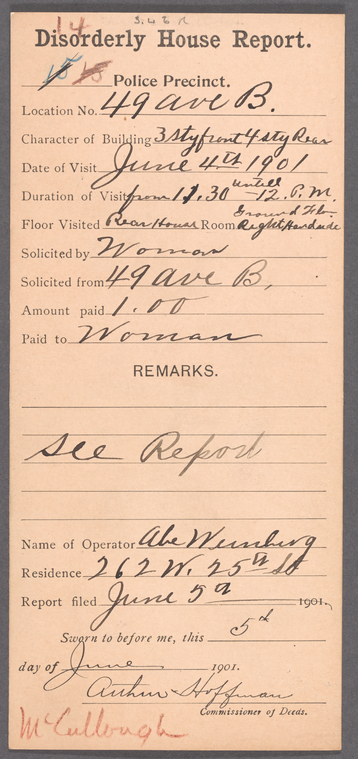 3.4 E R
14
Disorderly House Report.
15 15 Police Precinct.
Location No. 49 Ave B.
Character of Building 3 sty front 4 sty Rear
Date of Visit June 4th 1901
Duration of Visit from 11.30 untill 12. P. M.
Floor Visited Rear House Room Ground Flr. Right Handside
Solicited by Woman
Solicited from 49 Ave B,
Amount paid 1.00
Paid to Woman
REMARKS.
See Report
Name of Operator Abe Weinberg
Residence 262 W. 25th St
Report filed June 5th 1901.
Sworn to before me, this 5th
day of June 1901.
Arthur Hoffman
Commissioner of Deeds.
McCullough